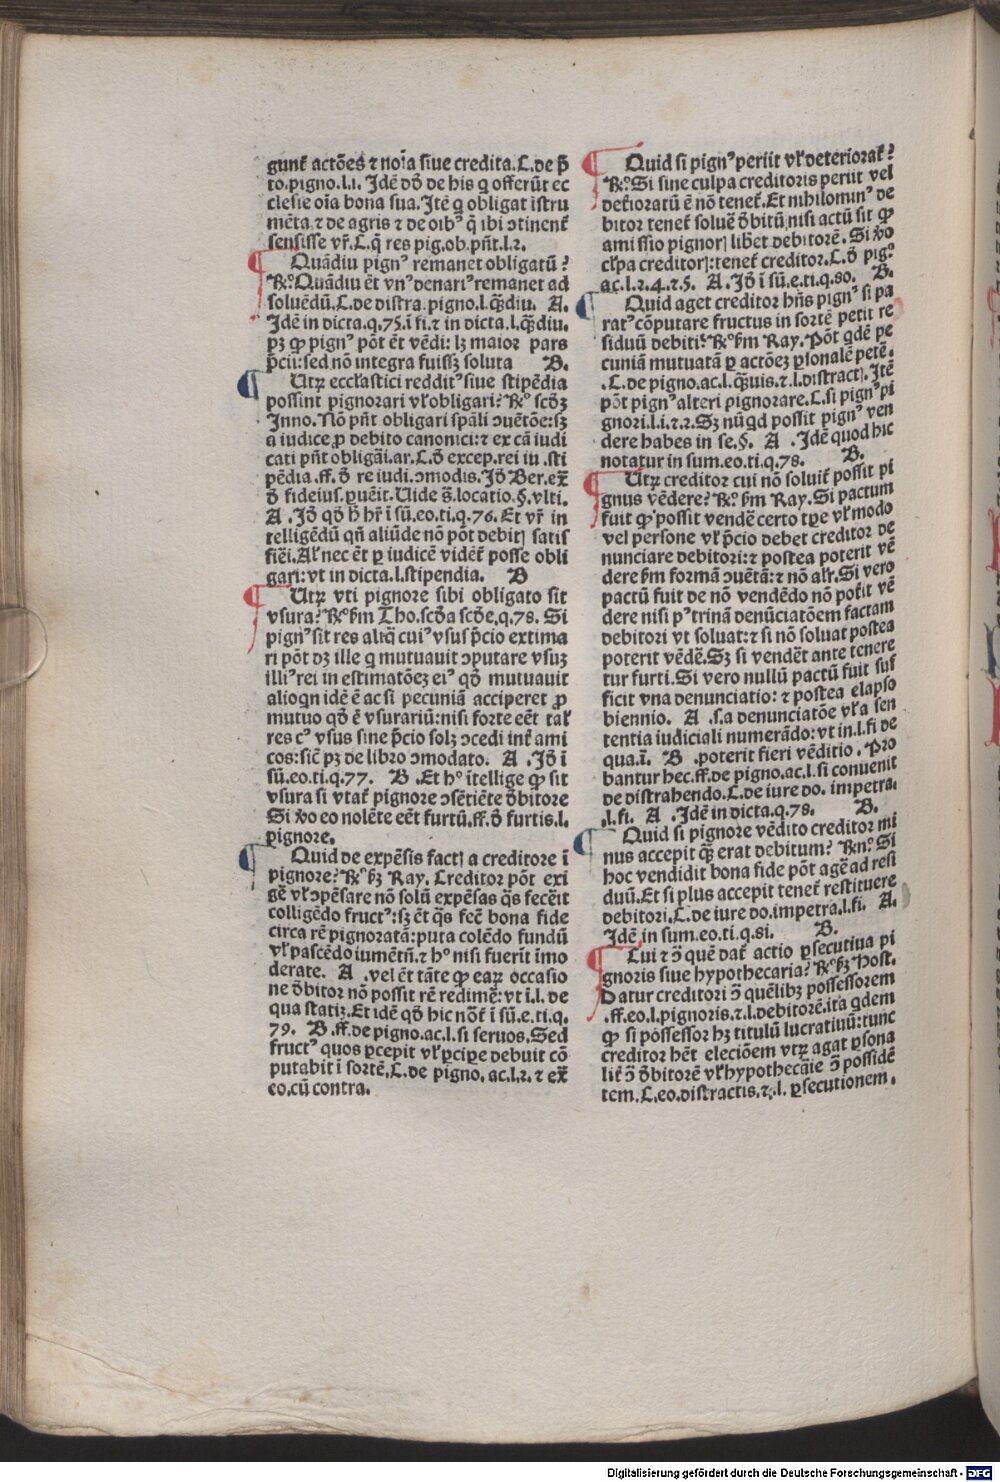 gunt̃ actões ⁊ noĩa siue credita. C. de p̃
to. pigno. l. i. Idẽ dõ de his q offerũt ec
clesie oĩa bona sua. Itẽ q obligat ĩstru
mẽta ⁊ de agris ⁊ de oib⁹ q̃ ibi ↄtinent̃
sensisse vr̃. C. q̃ res pig. ob. pñt. l. 2.
Quãdiu pign⁹ remanet obligatũ?
R̃⁰. Quãdiu ẽt vn⁹ denari⁹ remanet ad
soluẽdũ. C. de distra. pigno. l. q̃ꝫdiu. A.
Idẽ in dicta. q. 75. ĩ fi. ⁊ in dicta. l. q̃ꝫdiu.
pꝫ ꝙ pign⁹ põt ẽt vẽdi: lꝫ maior pars
p̃cii: sed nõ integra fuissꝫ soluta B.
Utꝝ eccl̃astici reddit⁹ siue stipẽdia
possint pignorari vl̃ obligari? R̃⁰ scd̃ꝫ
Inno. Nõ pñt obligari sp̃ali ↄuẽtõe: sꝫ
a iudice ꝓ debito canonici: ⁊ ex cã iudi
cati pñt obligãi. ar. C. õ excep. rei iu. sti
pẽdia. ff. õ re iudi. ↄmodis. Jõ Ber. ex̃
õ fideius. ꝑuẽit. Uide s̃. locatio. §. vlti.
A. Jõ qõ h̃ hr̃ ĩ sũ. eo. ti. q. 76. Et vr̃ in
telligẽdũ qñ aliũde nõ põt debitꝭ satis
fiẽi. Al̃ nec ẽt ꝑ iudicẽ vidẽt̃ posse obli
gari: vt in dicta. l. stipendia. B
Utꝝ vti pignore sibi obligato sit
vsura? R̃⁰ ẜm Tho. scd̃a scd̃e. q. 78. Si
pign⁹ sit res aliq̃ cui⁹ vsus p̃cio extima
ri põt dꝫ ille q mutuauit ↄputare vsuꝫ
illi⁹ rei in estimatõeꝫ ei⁹ qõ mutuauit
alioqn idẽ ẽ ac si pecuniã acciperet ꝓ
mutuo qõ ẽ vsurariũ: nisi forte eẽt tal̃
res c⁹ vsus sine p̃cio solꝫ ↄcedi int̃ ami
cos: sic̃ pꝫ de libro ↄmodato. A. Jõ ĩ
sũ. eo. ti. q. 77. B. Et h⁰ ĩtellige ꝙ sit
vsura si vtat̃ pignore ↄsẽtiẽte õbitore
Si ṽo eo nolẽte eẽt furtũ. ff. õ furtis. l.
pignore.
Quid de expẽsis factꝭ a creditore ĩ
pignore? R̃⁰ ẜꝫ Ray. Creditor põt exi
gẽ vl̃ ↄpẽsare nõ solũ expẽsas q̃s fecẽit
colligẽdo fruct⁹: sꝫ ẽt q̃s fec̃ bona fide
circa rẽ pignoratã: puta colẽdo fundũ
vl̃ pascẽdo iumẽtũ. ⁊ h⁰ nisi fuerit ĩmo
derate. A. vel ẽt tãte ꝙ eaꝝ occasio
ne õbitor nõ possit rẽ redimẽ: vt ĩ. l. de
qua statiꝫ. Et idẽ qõ hic nõt̃ ĩ sũ. e. ti. q.
79. B. ff. de pigno. ac. l. si seruos. Sed
fruct⁹ quos ꝑcepit vl̃ ꝑciꝑe debuit cõ
putabit ĩ sortẽ. C. de pigno. ac. l. 2. ⁊ ex̃
eo. cũ contra.
Quid si pign⁹ periit vl̃ deteriorat̃?
R̃⁰. Si sine culpa creditoris periit vel
det̃ioratũ ẽ nõ tenet̃. Et nihilomin⁹ de
bitor tenet̃ soluẽ õbitũ nisi actũ sit ꝙ
amissio pignorꝭ libet debitorẽ. Si ṽo
cl̃pa creditorꝭ: tenet̃ creditor. C. õ pig⁰.
ac. l. 2. 4. ⁊ 5. A. Jõ ĩ sũ. e. ti. q. 80. B.
Quid aget creditor hñs pign⁹ si pa
rat⁹ cõputare fructus in sortẽ petit re
siduũ debiti? R̃⁰ ẜm Ray. Põt qdẽ pe
cuniã mutuatã ꝑ actõeꝫ ꝑsonalẽ petẽ.
. C. de pigno. ac. l. q̃ꝫuis. ⁊. l. distractꝭ. Itẽ
põt pign⁹ alteri pignorare. C. si pign⁹ pi
gnori. l. i. ⁊. 2. Sꝫ nũqd possit pign⁹ ven
dere habes in se. §. A. Idẽ quod hic
notatur in sum. eo. ti. q. 78. B.
Utꝝ creditor cui nõ soluit̃ possit pi
gnus vẽdere? R̃⁰ ẜm Ray. Si pactum
fuit ꝙ possit vendẽ certo tꝑe vl̃ modo
vel persone vl̃ p̃cio debet creditor de
nunciare debitori: ⁊ postea poterit vẽ
dere ẜm formã ↄuẽtã: ⁊ nõ alr̃. Si vero
pactũ fuit de nõ vendẽdo nõ pot̃it vẽ
dere nisi p⁹ trinã denũciatõem factam
debitori vt soluat: ⁊ si nõ soluat postea
poterit vẽdẽ. Sꝫ si vendẽt ante tenere
tur furti. Si vero nullũ pactũ fuit suf
ficit vna denunciatio: ⁊ postea elapso
biennio. A. s. a denunciatõe vl̃ a sen
tentia iudiciali numerãdo: vt in. l. fi de
qua. ĩ. B. poterit fieri vẽditio. Pro
bantur hec. ff. de pigno. ac. l. si convenit
de distrahendo. C. de iure do. impetra.
. l. fi. A. Idẽ in dicta. q. 78. B.
Quid si pignore vẽdito creditor mi
nus accepit q̃ꝫ erat debitum? R̃n⁰. Si
hoc vendidit bona fide põt agẽ ad resi
duũ. Et si plus accepit tenet̃ restituere
debitori. C. de iure do. impetra. l. fi. A.
Idẽ in sum. eo. ti. q. 81. B.
Cui ⁊ ↄ̃ quẽ dat̃ actio ꝑsecutiua pi
gnoris siue hypothecaria? R̃⁰ ẜꝫ Host.
Datur creditori ↄ̃ quẽlibꝫ possessorem
. ff. eo. l. pignoris. ⁊. l. debitorẽ. ita qdem
ꝙ si possessor hꝫ titulũ lucratiuũ: tunc
creditor hẽt elecõem vtꝝ agat ꝑsona
lit̃ ↄ̃ õbitorẽ vl̃ hypothecãie ↄ̃ possidẽ
tem. C. eo. distractis. ⁊. l. ꝑsecutionem.
Digitalisierung gefördert durch die Deutsche Forschungsgemeinschaft - DFG